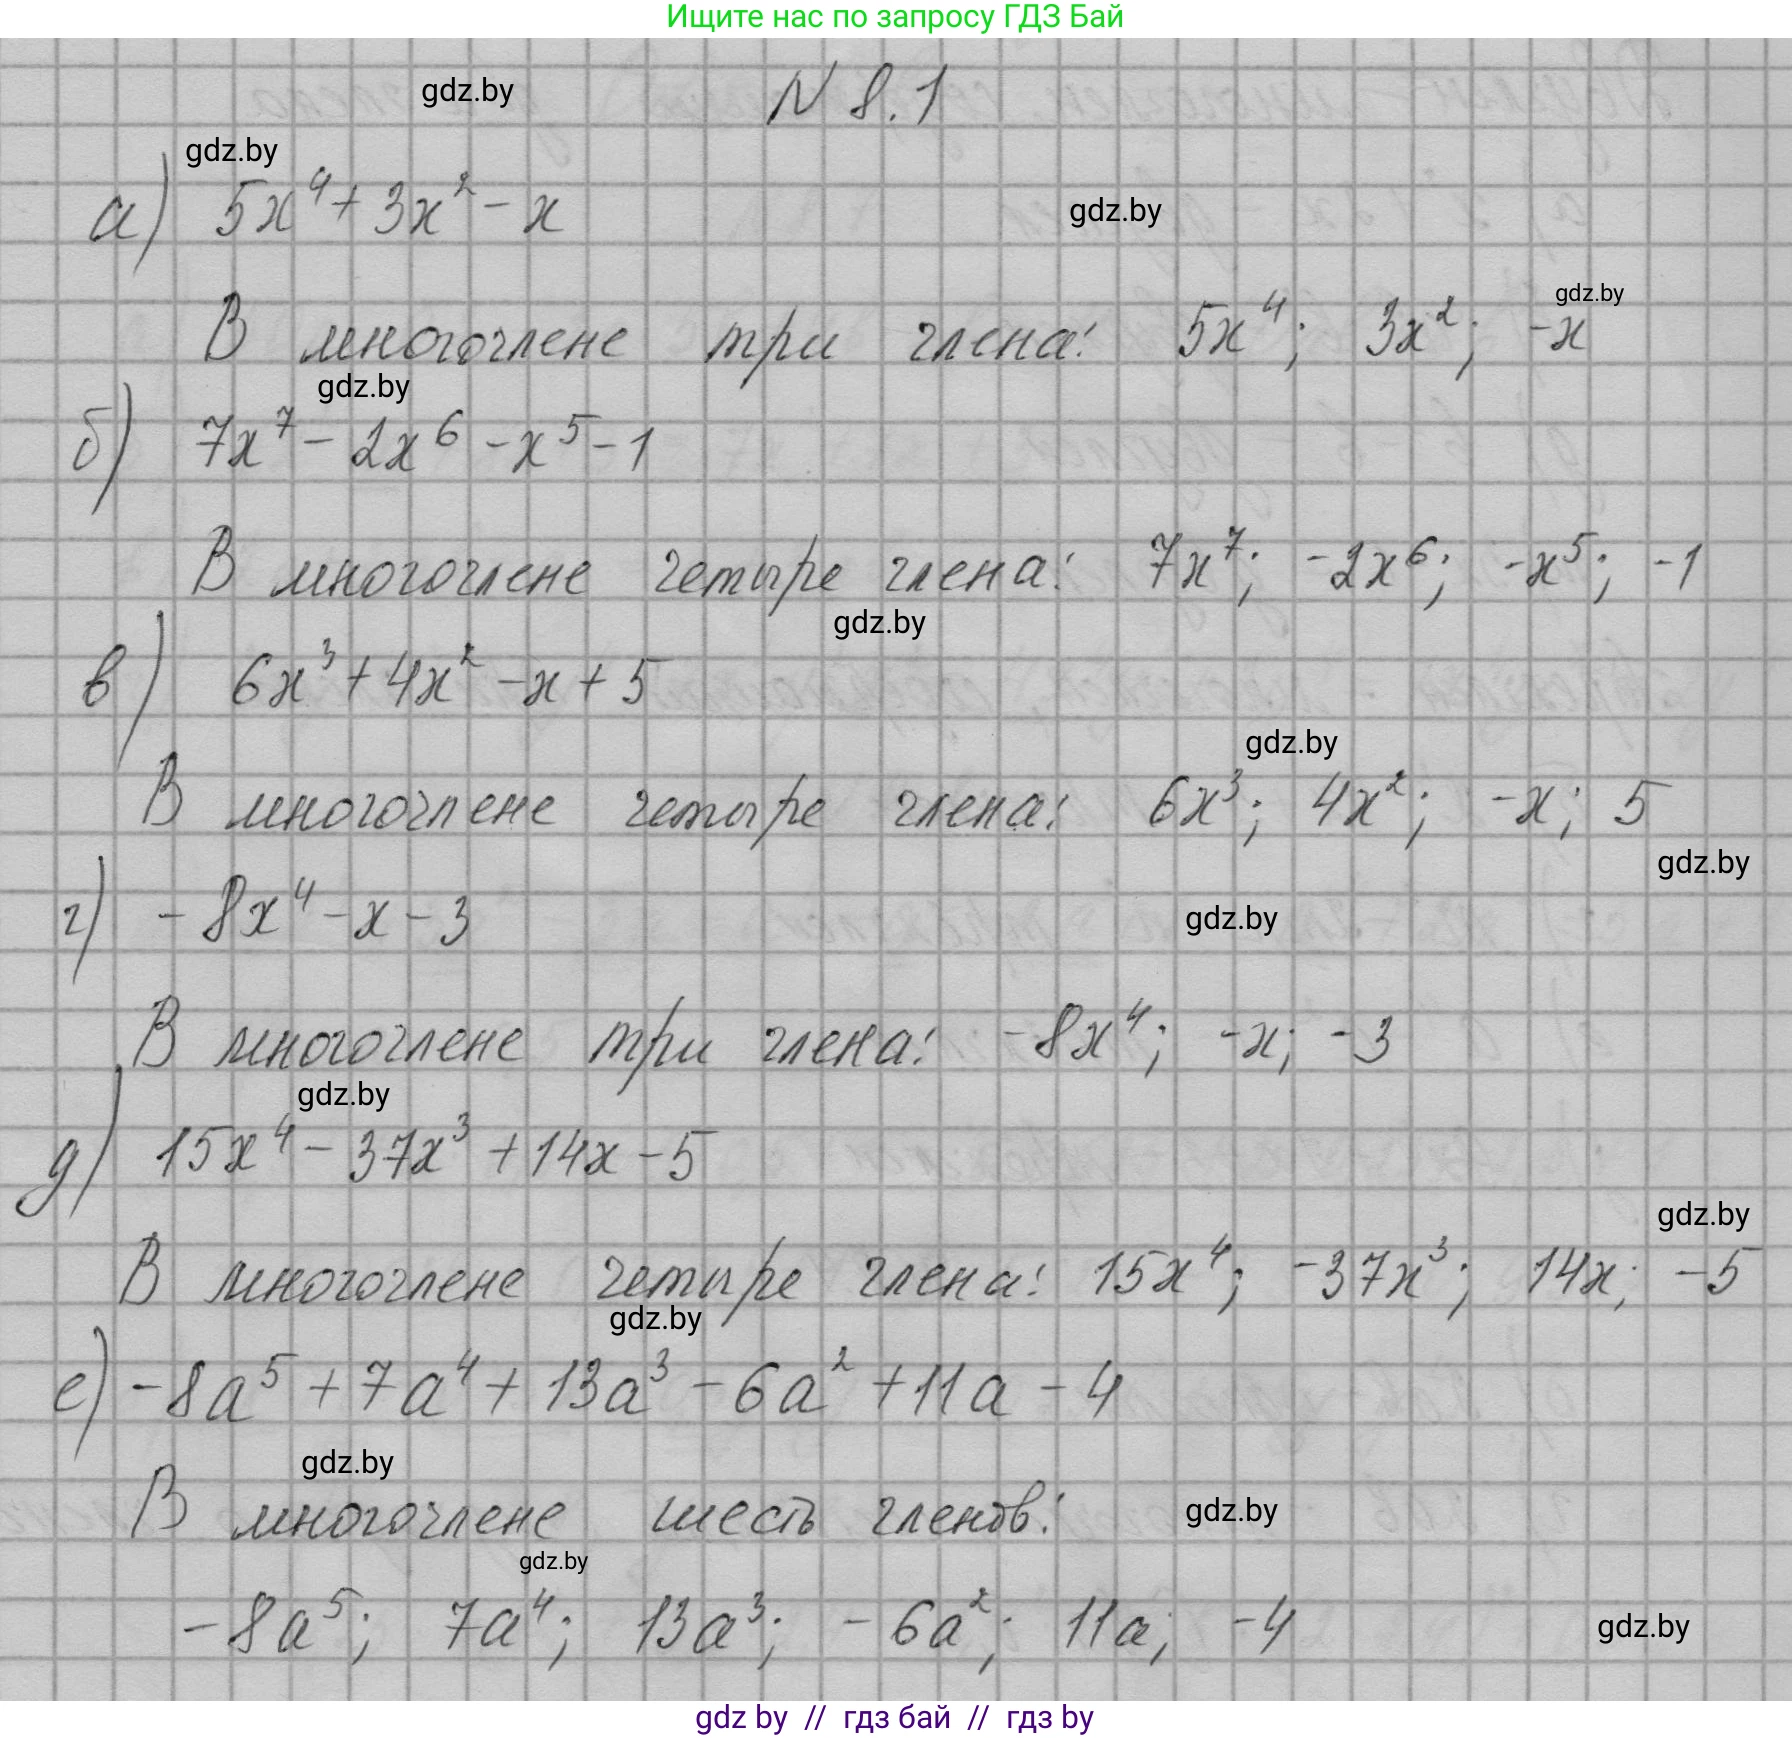 Ищите нас по запросу ГДЗ Бай
gdz.by
N 8.1
gdz.by
а) 5x⁴ + 3x² - x
gdz.by
gdz.by
В многочлене три члена: 5x⁴; 3x²; -x
gdz.by
б) 7x⁷ - 2x⁶ - x⁵ - 1
В многочлене четыре члена: 7x⁷; -2x⁶; -x⁵; -1
gdz.by
в) 6x³ + 4x² - x + 5
gdz.by
В многочлене четыре члена: 6x³; 4x²; -x; 5
gdz.by
г) -8x⁴ - x - 3
gdz.by
В многочлене три члена: -8x⁴; -x; -3
gdz.by
д) 15x⁴ - 37x³ + 14x - 5
gdz.by
В многочлене четыре члена: 15x⁴; -37x³; 14x; -5
gdz.by
е) -8a⁵ + 7a⁴ + 13a³ - 6a² + 11a - 4
gdz.by
В многочлене шесть членов:
gdz.by
gdz.by
-8a⁵; 7a⁴; 13a³; -6a²; 11a; -4
gdz.by
gdz by // гдз бай // гдз by